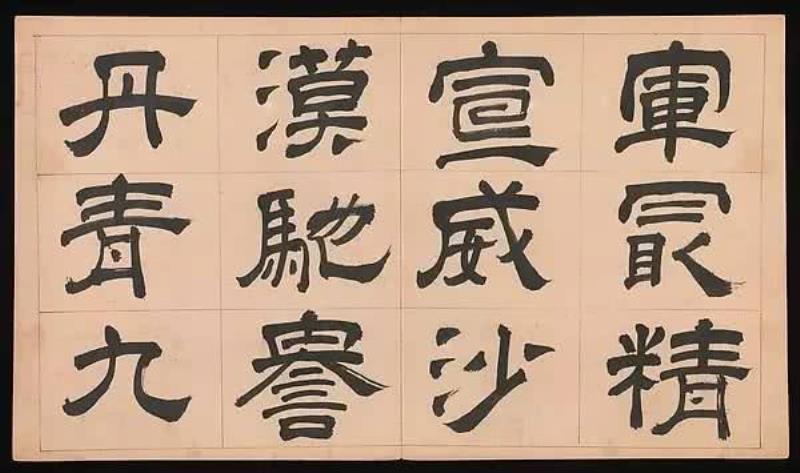 軍冣精
宣威沙
漠馳譽
丹青九